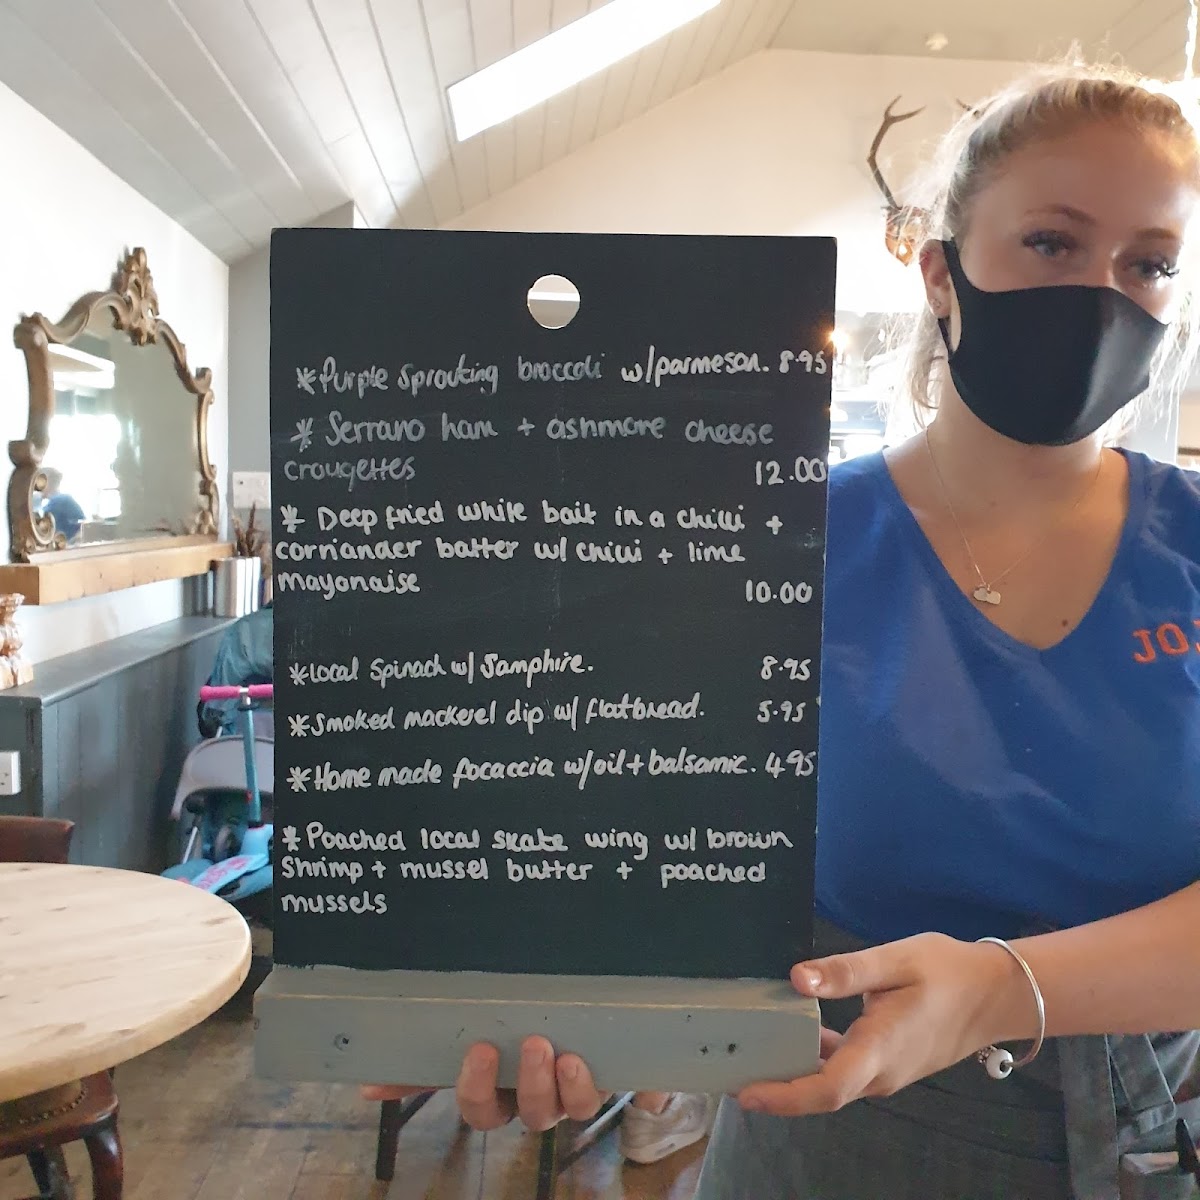 *Purple Sprouting broccoli w/parmesan. 8.95
* Serrano ham + ashmore cheese
crouqettes 12.00
* Deep fried white bait in a chilli +
corriander batter w/ chilli + lime
mayonaise 10.00
*Local Spinach w/ Samphire. 8.95
*Smoked mackerel dip w/ flatbread. 5.95
*Home made focaccia w/oil+balsamic. 4.95
*Poached local skate wing w/ brown
Shrimp + mussel butter + poached
mussels